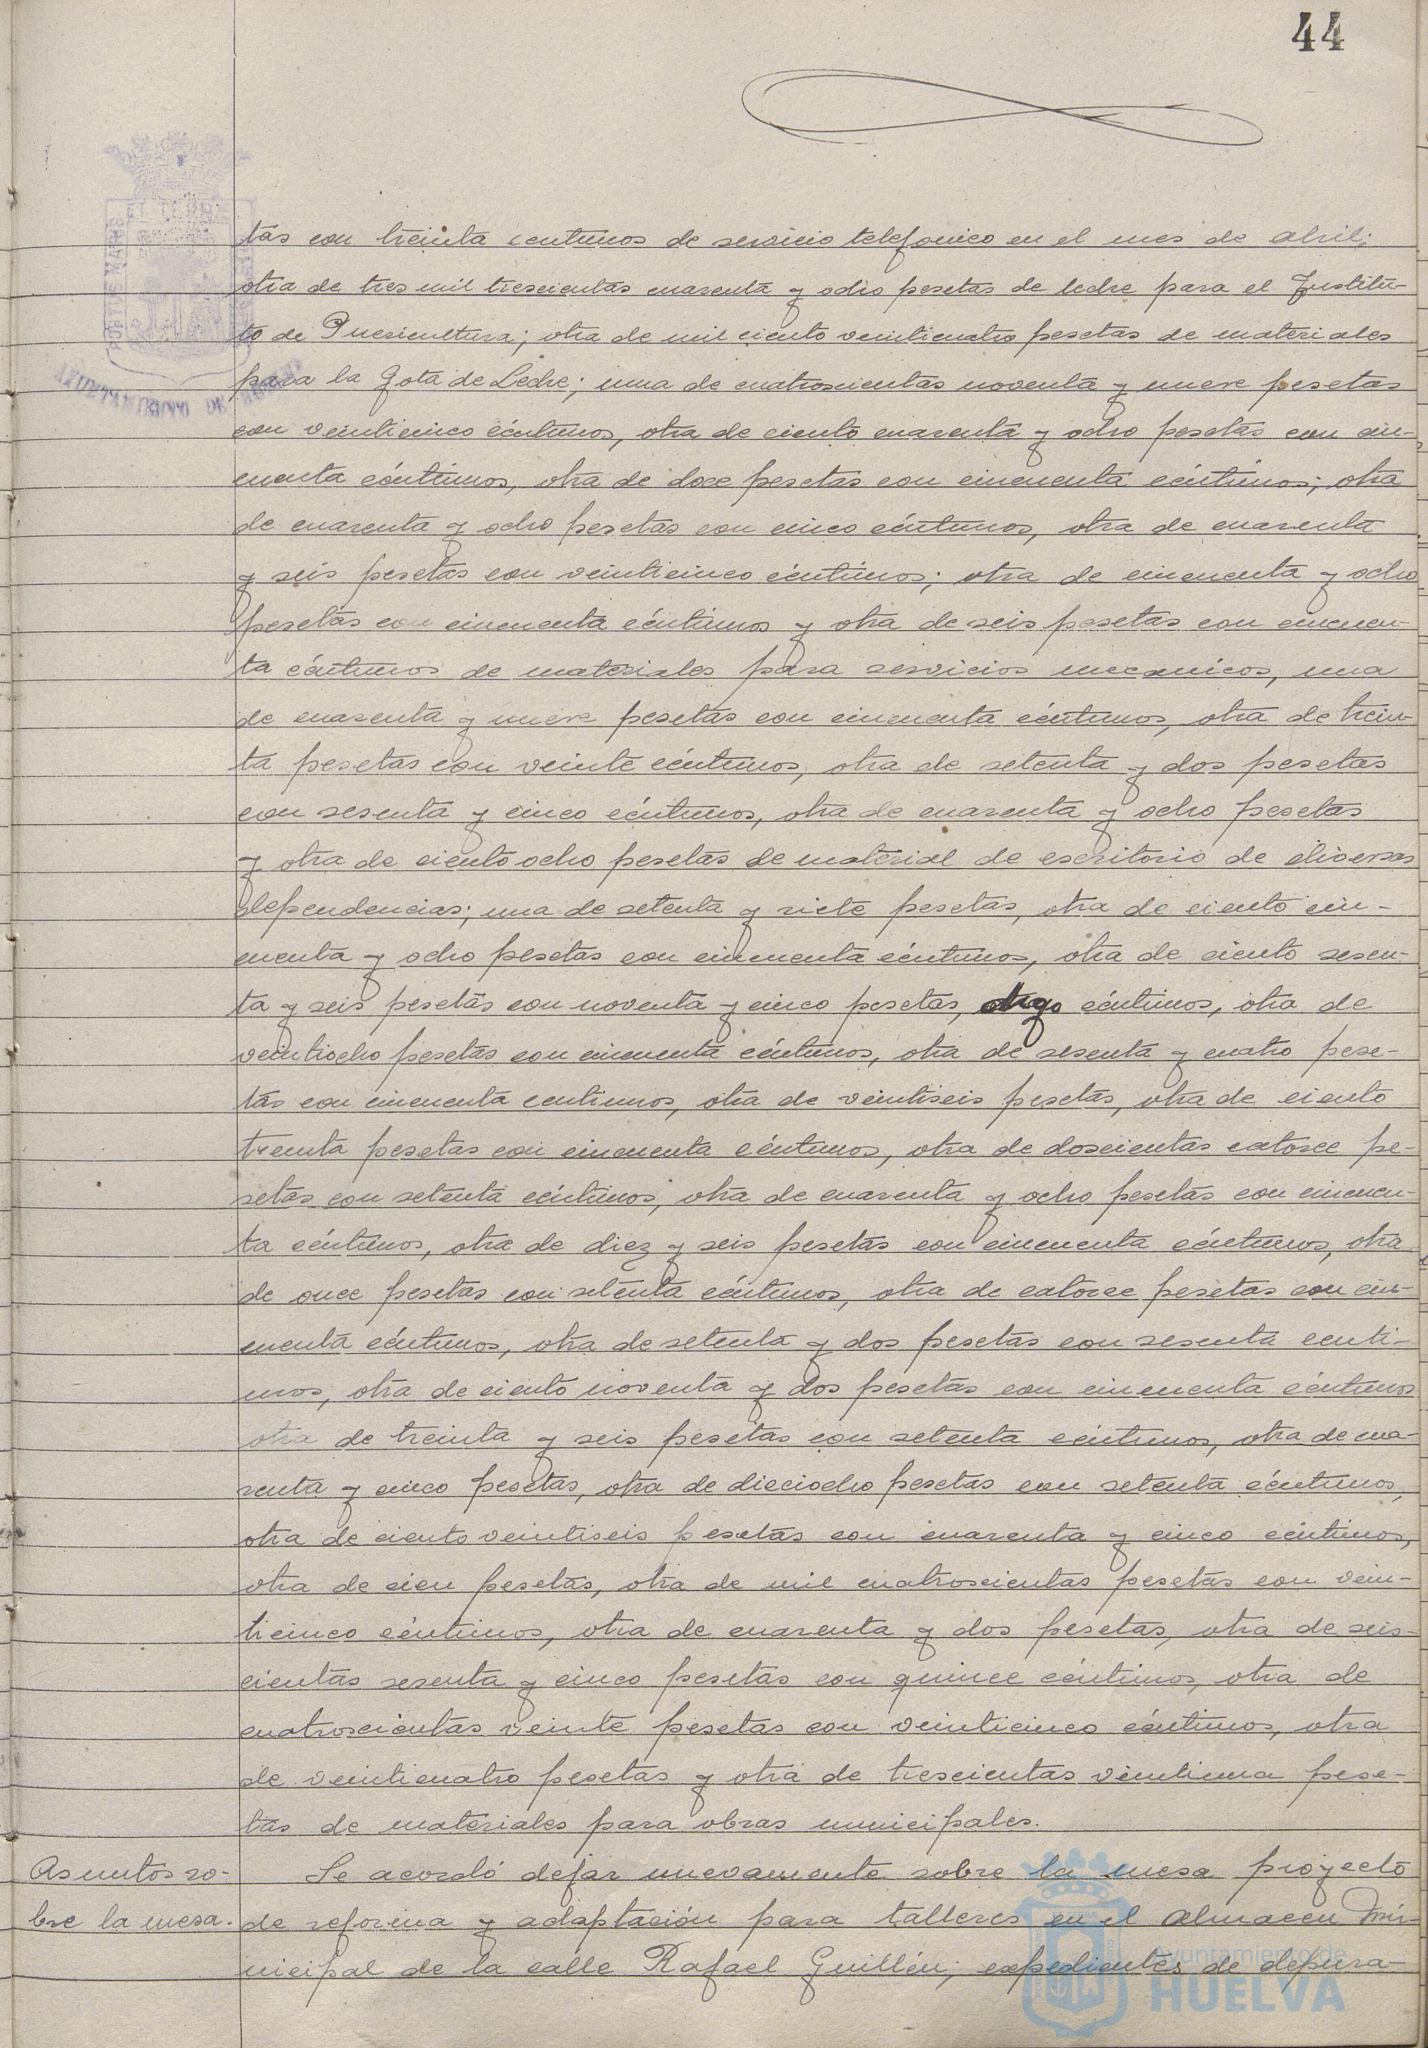 44
tas con treinta centimos de servicio telefonico en el mes de abril;
otra de tres mil trescientas cuarenta y ocho pesetas de leche para el Institu-
to de Puericultura; otra de mil ciento veinticuatro pesetas de materiales
para la Gota de Leche; una de cuatroscientas noventa y nueve pesetas
con veinticinco céntimos, otra de ciento cuarenta y ocho pesetas con cin-
cuenta céntimos, otra de doce pesetas con cincuenta céntimos; otra
de cuarenta y ocho pesetas con cinco céntimos, otra de cuarenta
y seis pesetas con veinticinco céntimos; otra de cincuenta y ocho
pesetas con cincuenta céntimos y otra de seis pesetas con cincuen-
ta céntimos de materiales para servicios mecanicos, una
de cuarenta y nueve pesetas con cincuenta céntimos, otra de trein-
ta pesetas con veinte céntimos, otra de setenta y dos pesetas
con sesenta y cinco céntimos, otra de cuarenta y ocho pesetas
y otra de ciento ocho pesetas de material de escritorio de diversas
dependencias; una de setenta y siete pesetas, otra de ciento cin-
cuenta y ocho pesetas con cincuenta céntimos, otra de ciento sesen-
ta y seis pesetas con noventa y cinco pesetas, digo céntimos, otra de
veintiocho pesetas con cincuenta céntimos, otra de sesenta y cuatro pese-
tas con cincuenta centimos, otra de veintiseis pesetas, otra de ciento
treinta pesetas con cincuenta céntimos, otra de doscientas catorce pe-
setas con setenta céntimos, otra de cuarenta y ocho pesetas con cincuen-
ta céntimos, otra de diez y seis pesetas con cincuenta céntimos, otra
de once pesetas con setenta céntimos, otra de catorce pesetas con cin-
cuenta céntimos, otra de setenta y dos pesetas con sesenta centi-
mos, otra de ciento noventa y dos pesetas con cincuenta céntimos
otra de treinta y seis pesetas con setenta céntimos, otra de cua-
renta y cinco pesetas, otra de dieciocho pesetas con setenta céntimos,
otra de ciento veintiseis pesetas con cuarenta y cinco céntimos,
otra de cien pesetas, otra de mil cuatroscientas pesetas con vein-
ticinco céntimos, otra de cuarenta y dos pesetas, otra de seis-
cientas sesenta y cinco pesetas con quince céntimos, otra de
cuatroscientas veinte pesetas con veinticinco céntimos, otra
de veinticuatro pesetas y otra de trescientas veintiuna pese-
tas de materiales para obras municipales.
Asuntos so-
bre la mesa.
Se acordó dejar nuevamente sobre la mesa proyecto
de reforma y adaptación para talleres en el Almacen Mu-
nicipal de la calle Rafael Guillén; expedientes de depura-
Ayuntamiento de
HUELVA